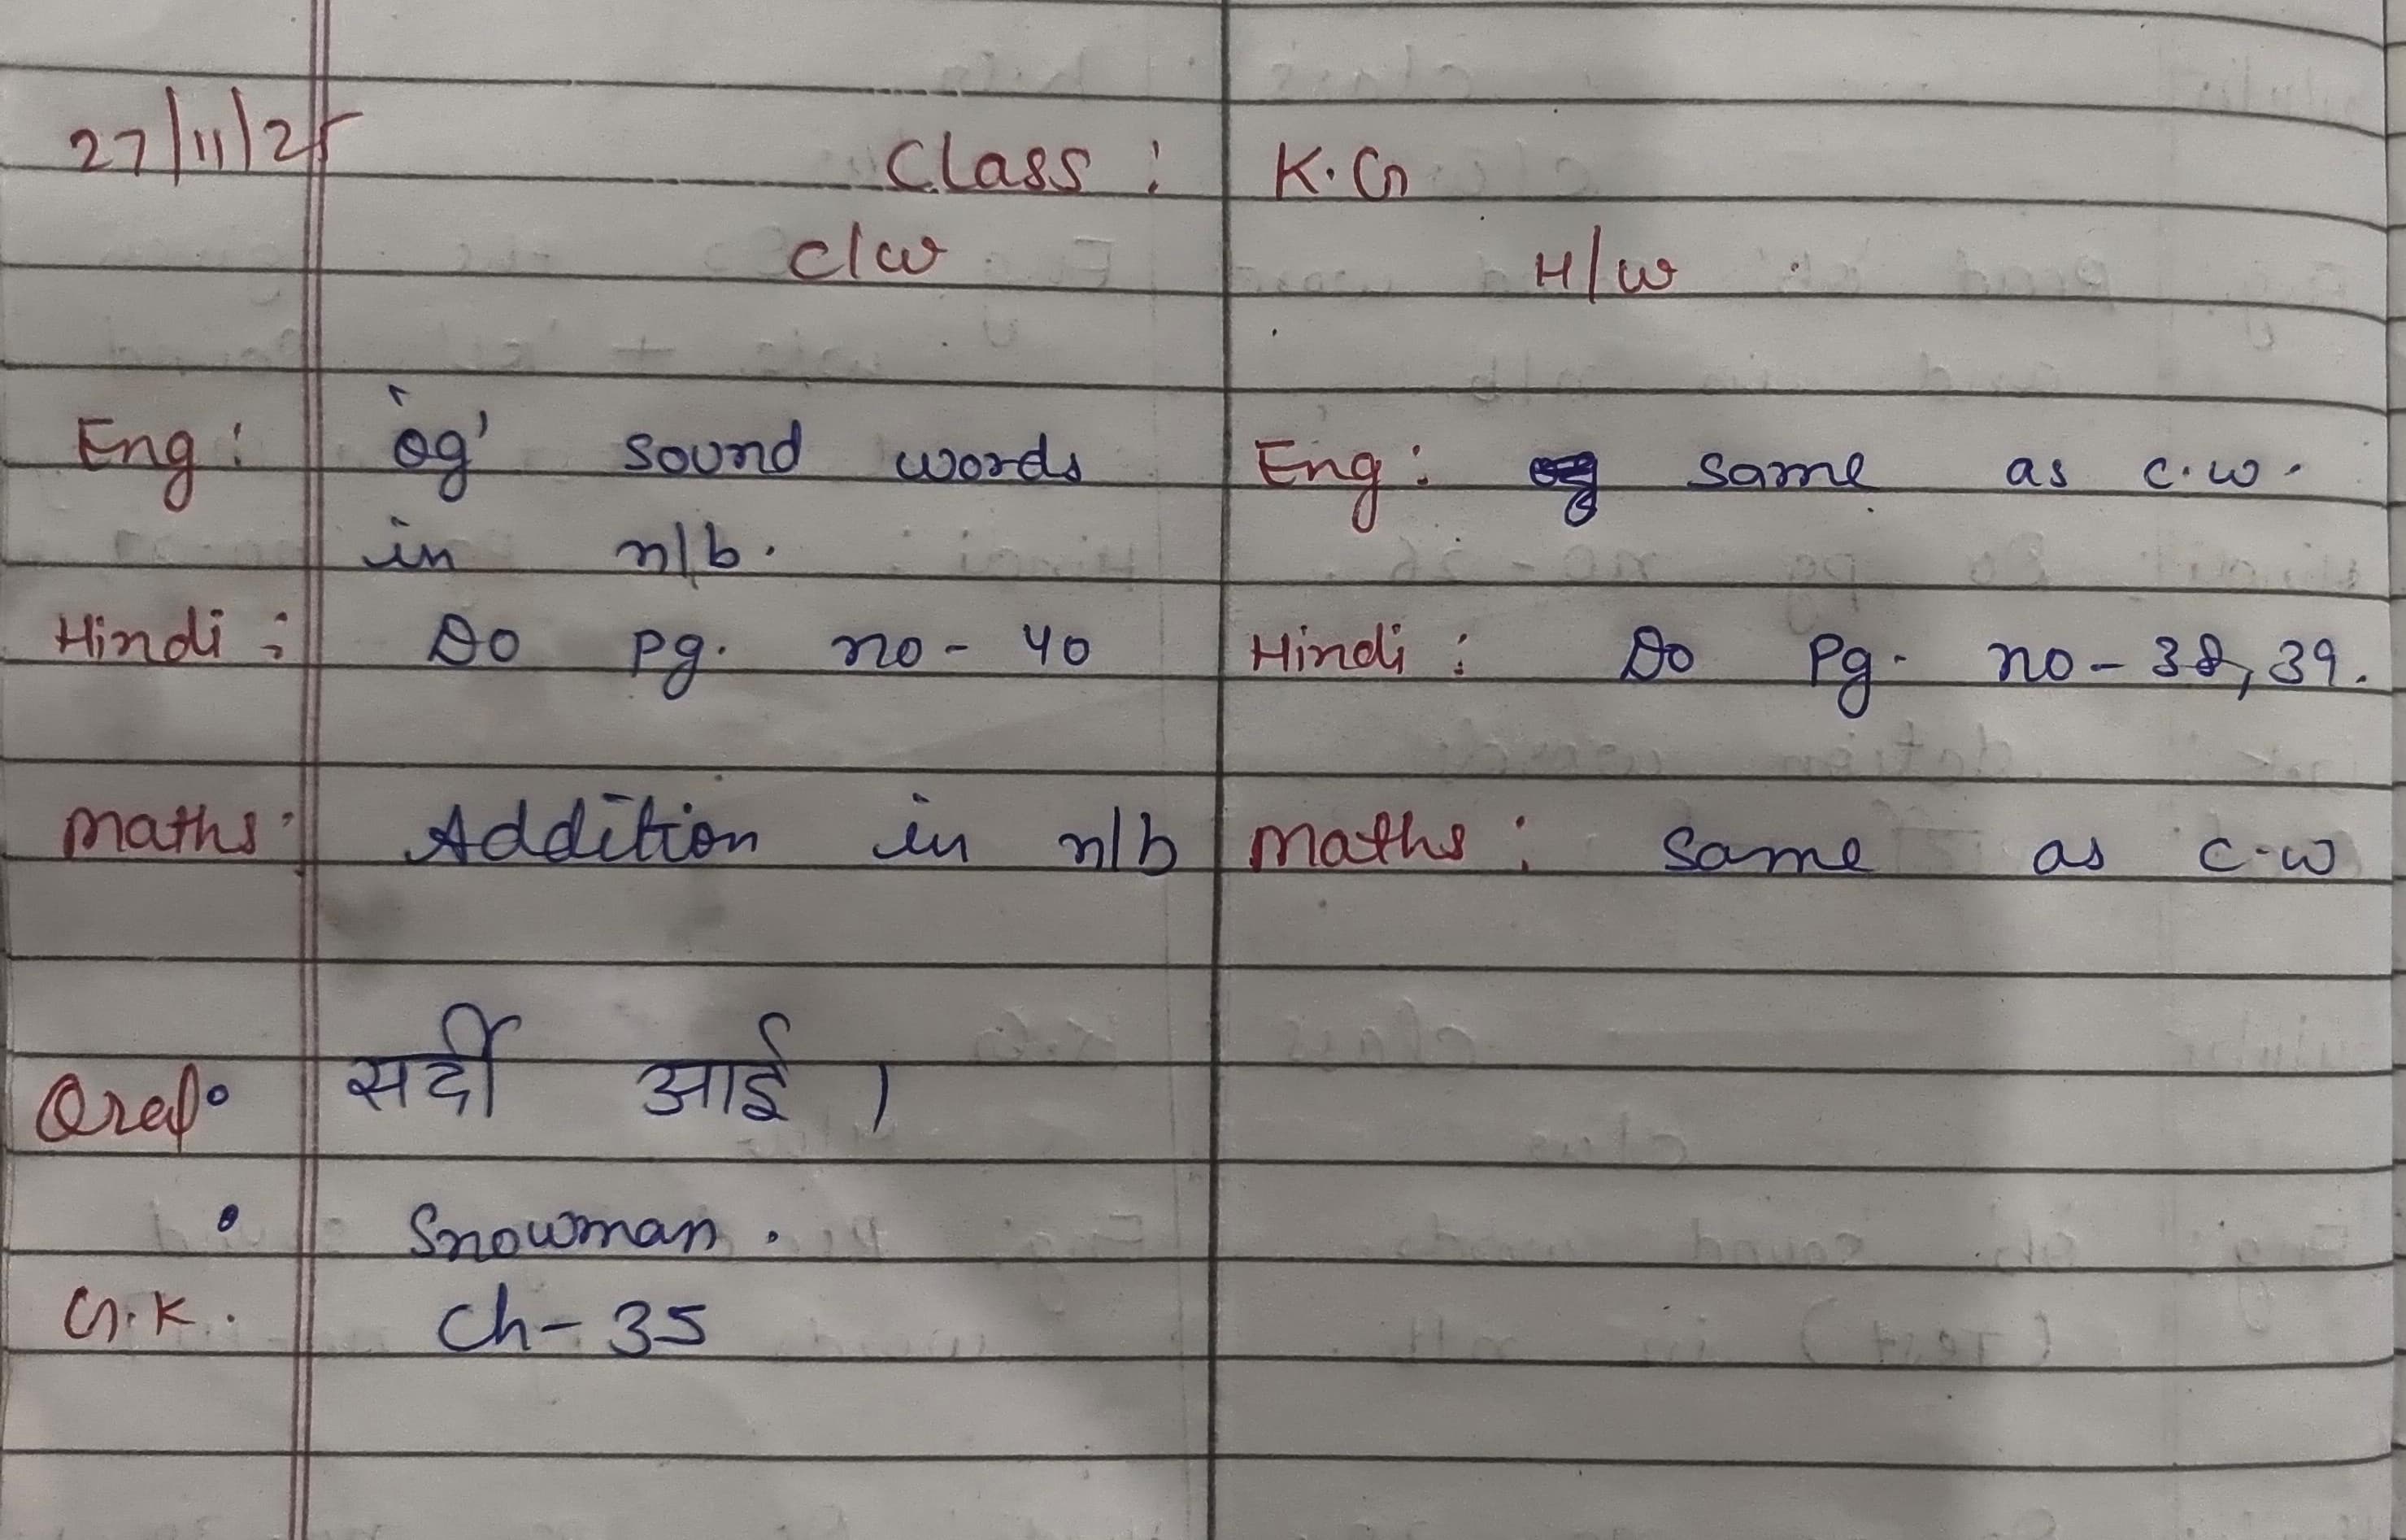 27/11/25 Class : K.G
C/W H/W
Eng : 'og' sound words Eng : same as c.w.
in n/b.
Hindi : Do Pg. no - 40 Hindi : Do Pg. no - 38, 39.
Maths: Addition in n/b Maths : Same as c.w
Oral • सर्दी आई ।
• Snowman.
G.K. Ch - 35